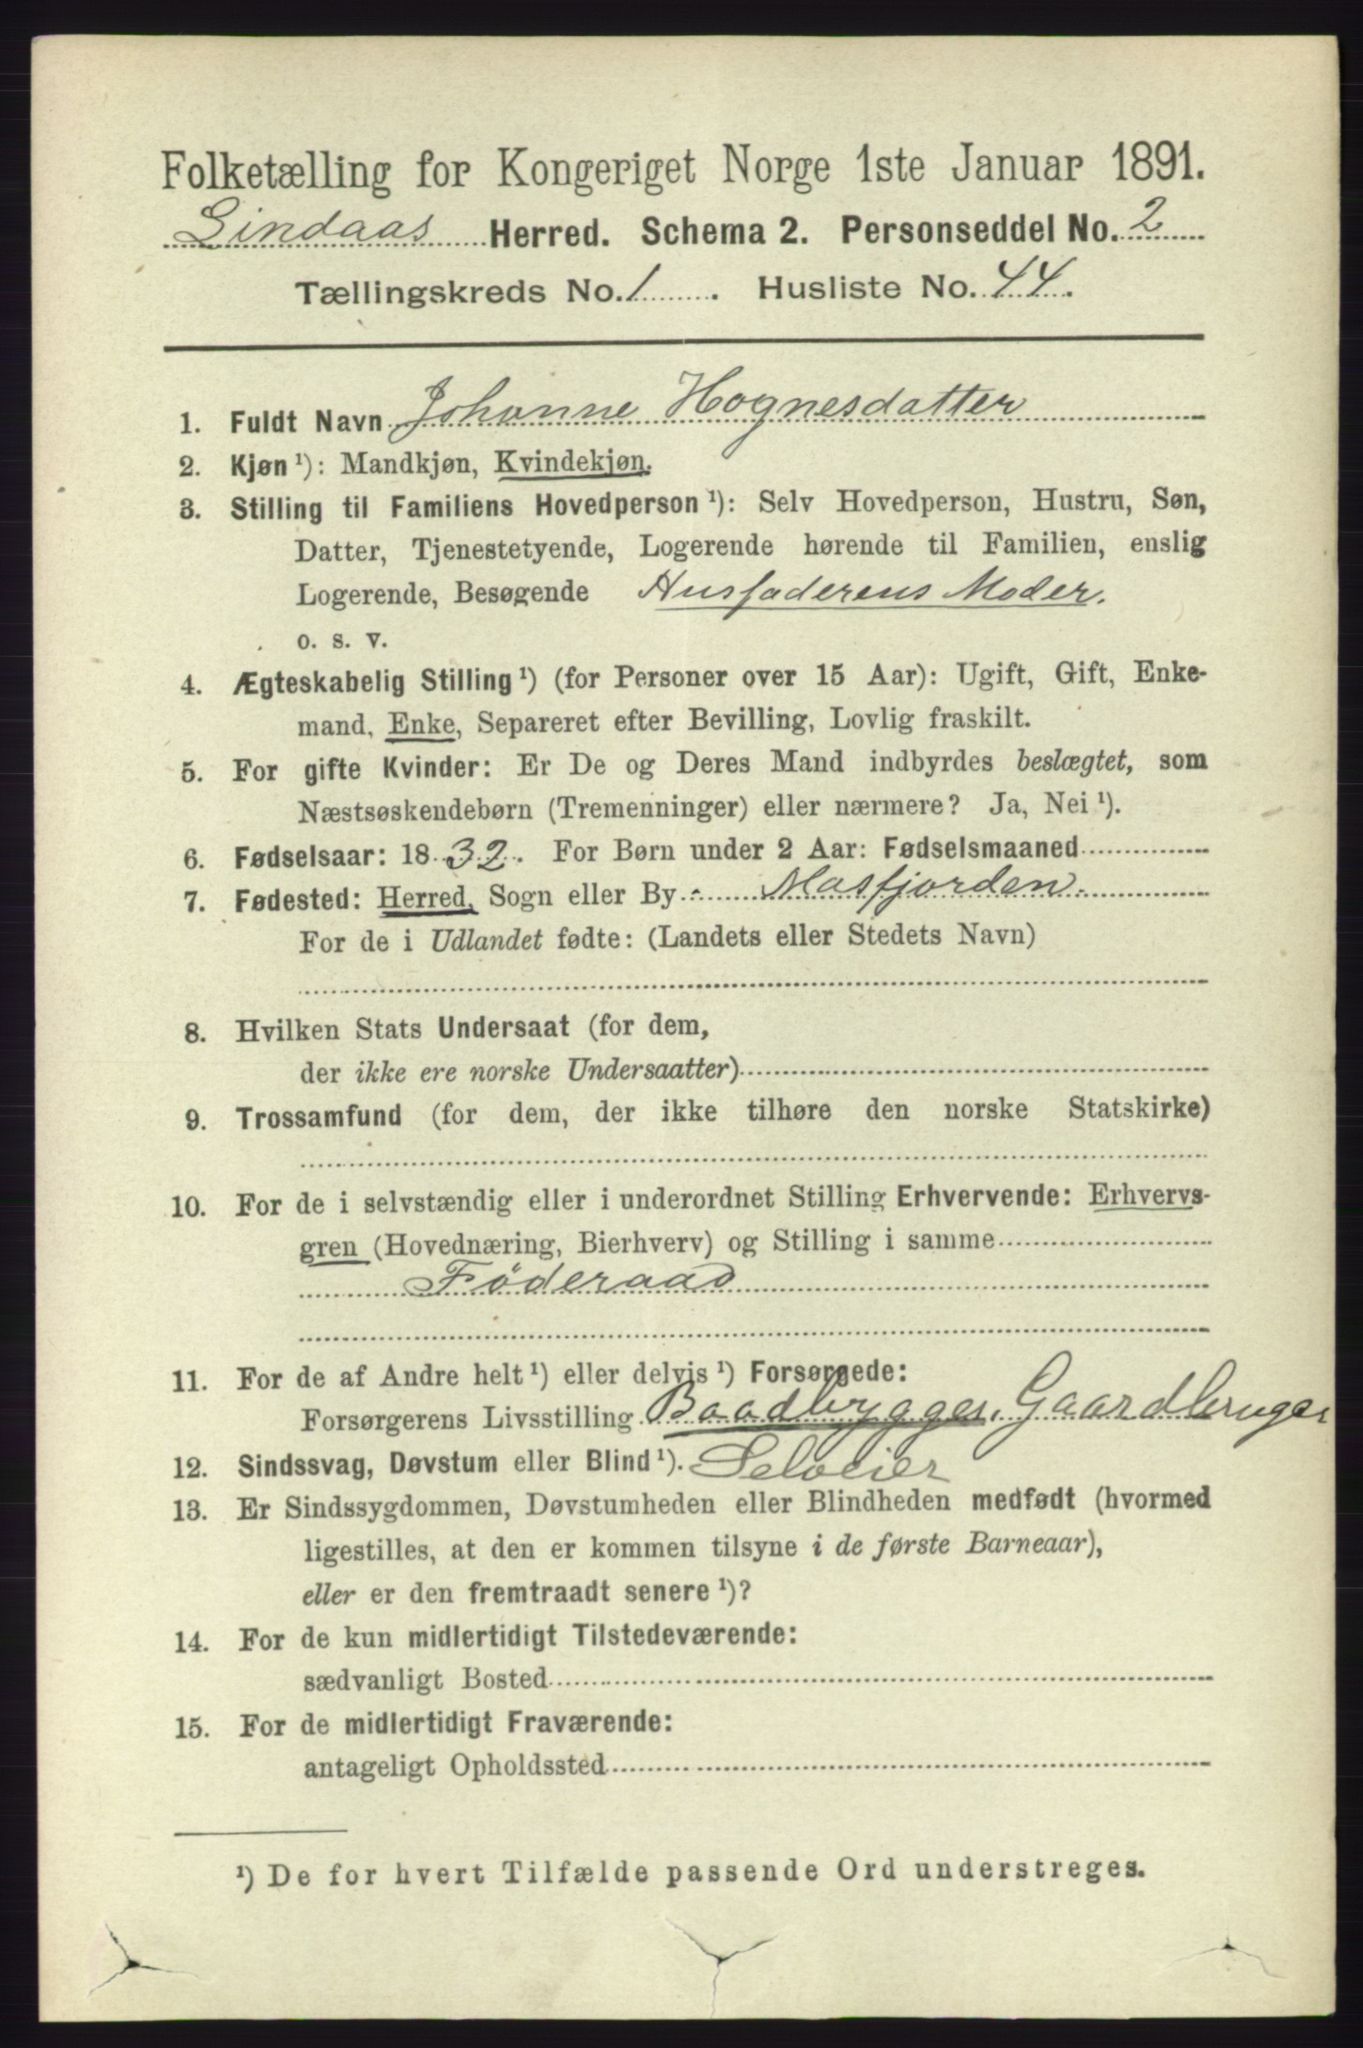 Folketælling for Kongeriget Norge 1ste Januar 1891.
Lindaas Herred. Schema 2. Personseddel No. 2
Tællingskreds No. 1. Husliste No. 44.
1. Fuldt Navn Johanne Hognesdatter
2. Kjøn ¹): Mandkjøn, Kvindekjøn.
3. Stilling til Familiens Hovedperson ¹): Selv Hovedperson, Hustru, Søn,
Datter, Tjenestetyende, Logerende hørende til Familien, enslig
Logerende, Besøgende Husfaderens Moder.
o. s. v.
4. Ægteskabelig Stilling ¹) (for Personer over 15 Aar): Ugift, Gift, Enke-
mand, Enke, Separeret efter Bevilling, Lovlig fraskilt.
5. For gifte Kvinder: Er De og Deres Mand indbyrdes beslægtet, som
Næstsøskendebørn (Tremenninger) eller nærmere? Ja, Nei ¹).
6. Fødselsaar: 1832. For Børn under 2 Aar: Fødselsmaaned
7. Fødested: Herred, Sogn eller By Masfjorden.
For de i Udlandet fødte: (Landets eller Stedets Navn)
8. Hvilken Stats Undersaat (for dem,
der ikke ere norske Undersaatter)
9. Trossamfund (for dem, der ikke tilhøre den norske Statskirke)
10. For de i selvstændig eller i underordnet Stilling Erhvervende: Erhvervs-
gren (Hovednæring, Bierhverv) og Stilling i samme
Föderaad
11. For de af Andre helt ¹) eller delvis ¹) Forsørgede:
Forsørgerens Livsstilling Baadbygger, Gaardbruger
12. Sindssvag, Døvstum eller Blind ¹). Selveier
13. Er Sindssygdommen, Døvstumheden eller Blindheden medfødt (hvormed
ligestilles, at den er kommen tilsyne i de første Barneaar),
eller er den fremtraadt senere ¹)?
14. For de kun midlertidigt Tilstedeværende:
sædvanligt Bosted
15. For de midlertidigt Fraværende:
antageligt Opholdssted
¹) De for hvert Tilfælde passende Ord understreges.